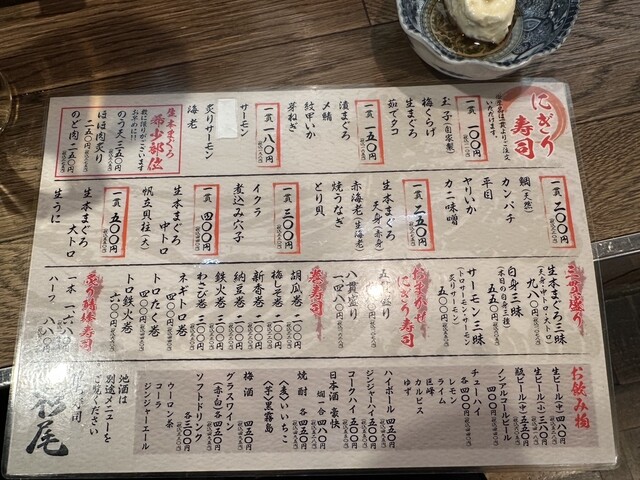 にぎり寿司
一貫一〇〇円
玉子(自家製)
梅くらげ
生まぐろ
茹でタコ
一貫一五〇円
漬まぐろ
〆鯖
紋甲いか
芽ねぎ
一貫一八〇円
サーモン
炙りサーモン
海老
生本まぐろ
希少部位
数に限りがございます
お早めに!!
のう天 三五〇円
ほほ肉炙り
二五〇円
のど肉 二五〇円
一貫二〇〇円
鯛(天然)
カンパチ
平目
ヤリいか
カニ味噌
一貫二五〇円
生本まぐろ
天身(赤身)
赤海老(生海老)
焼うなぎ
とり貝
一貫三〇〇円
イクラ
煮込み穴子
一貫四〇〇円
生本まぐろ
中トロ
帆立貝柱(大)
一貫五〇〇円
生本まぐろ
大トロ
生うに
三昧盛り
生本まぐろ三昧
(天身・中トロ・大トロ)
九八〇円
白身三昧
(本日の白身三種)
五五〇円
サーモン三昧
(トロサーモン・サーモン・炙りサーモン)
にぎり寿司
八貫盛り
一四八〇円
巻寿司
胡瓜巻 二〇〇円
梅しそ巻 二〇〇円
新香巻 二〇〇円
納豆巻 二〇〇円
鉄火巻 三〇〇円
わさび巻 三〇〇円
ネギトロ巻
四〇〇円
トロたく巻
四〇〇円
トロ鉄火巻
六〇〇円
炙り鯖棒寿司
一本
ハーフ
お飲み物
生ビール(中) 四八〇円
生ビール(小) 三八〇円
瓶ビール(中) 五五〇円
ノンアルコールビール
四〇〇円
チューハイ
各四〇〇円
レモン
ライム
巨峰
カルピス
ゆず
ハイボール 四五〇円
ジンジャーハイ 四五〇円
コークハイ 四五〇円
日本酒 豪快
一合 四〇〇円
焼酎 各四五〇円
(麦)いいちこ
(芋)黒霧島
梅酒 四五〇円
グラスワイン
(赤・白)各四五〇円
ソフトドリンク
各三〇〇円
ウーロン茶
コーラ
ジンジャーエール
地酒は
別途メニューを
ご覧ください